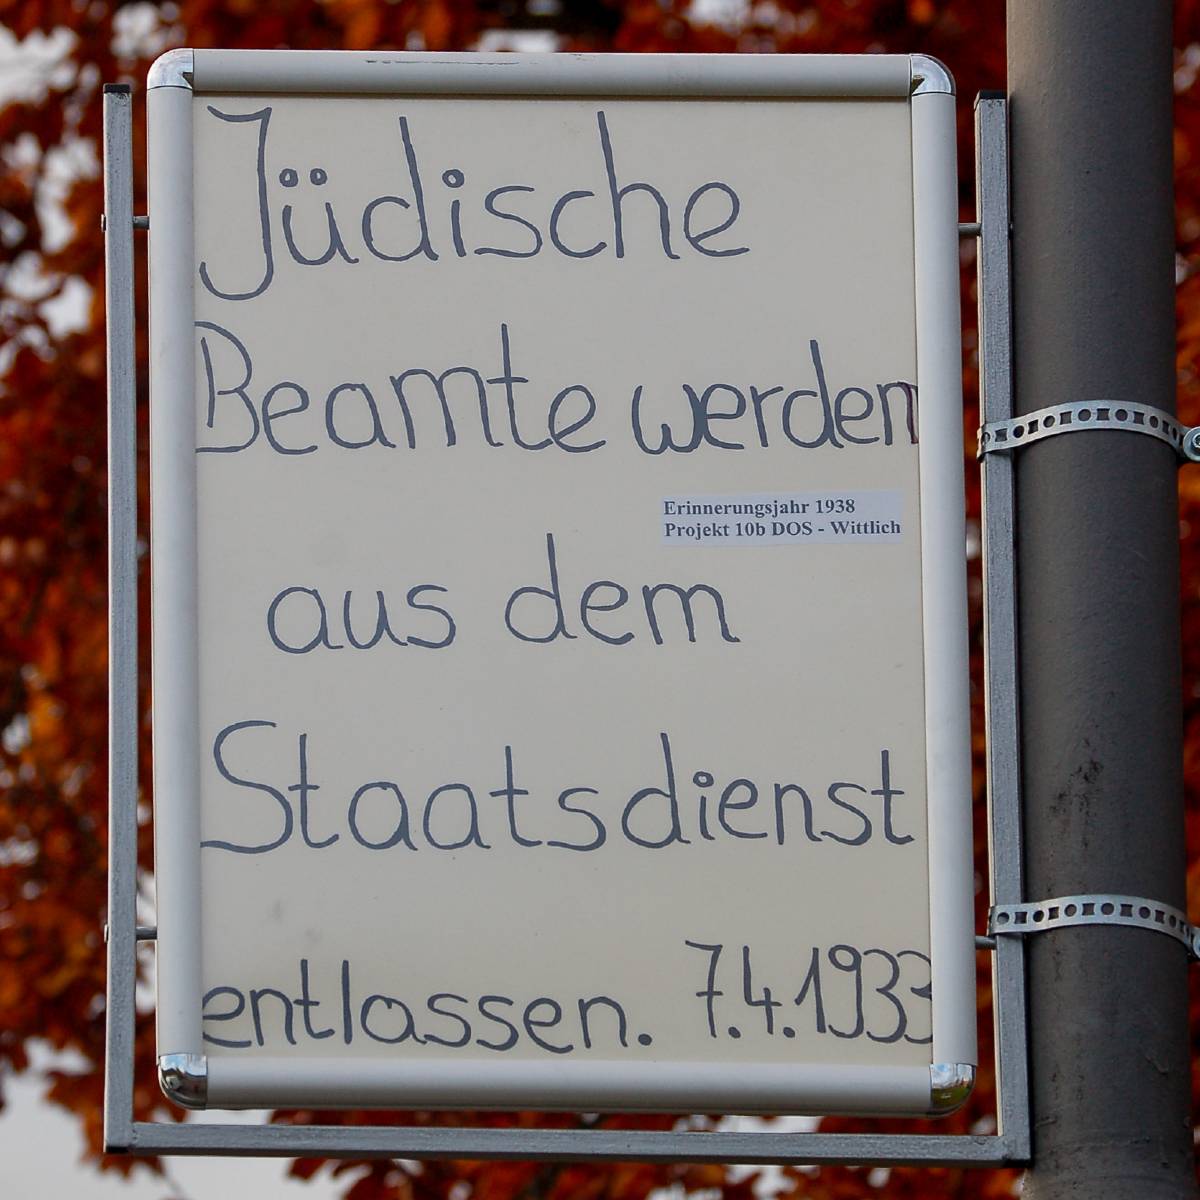 Jüdische
Beamte werden
Erinnerungsjahr 1938
Projekt 10b DOS - Wittlich
aus dem
Staatsdienst
entlassen. 7.4.1933